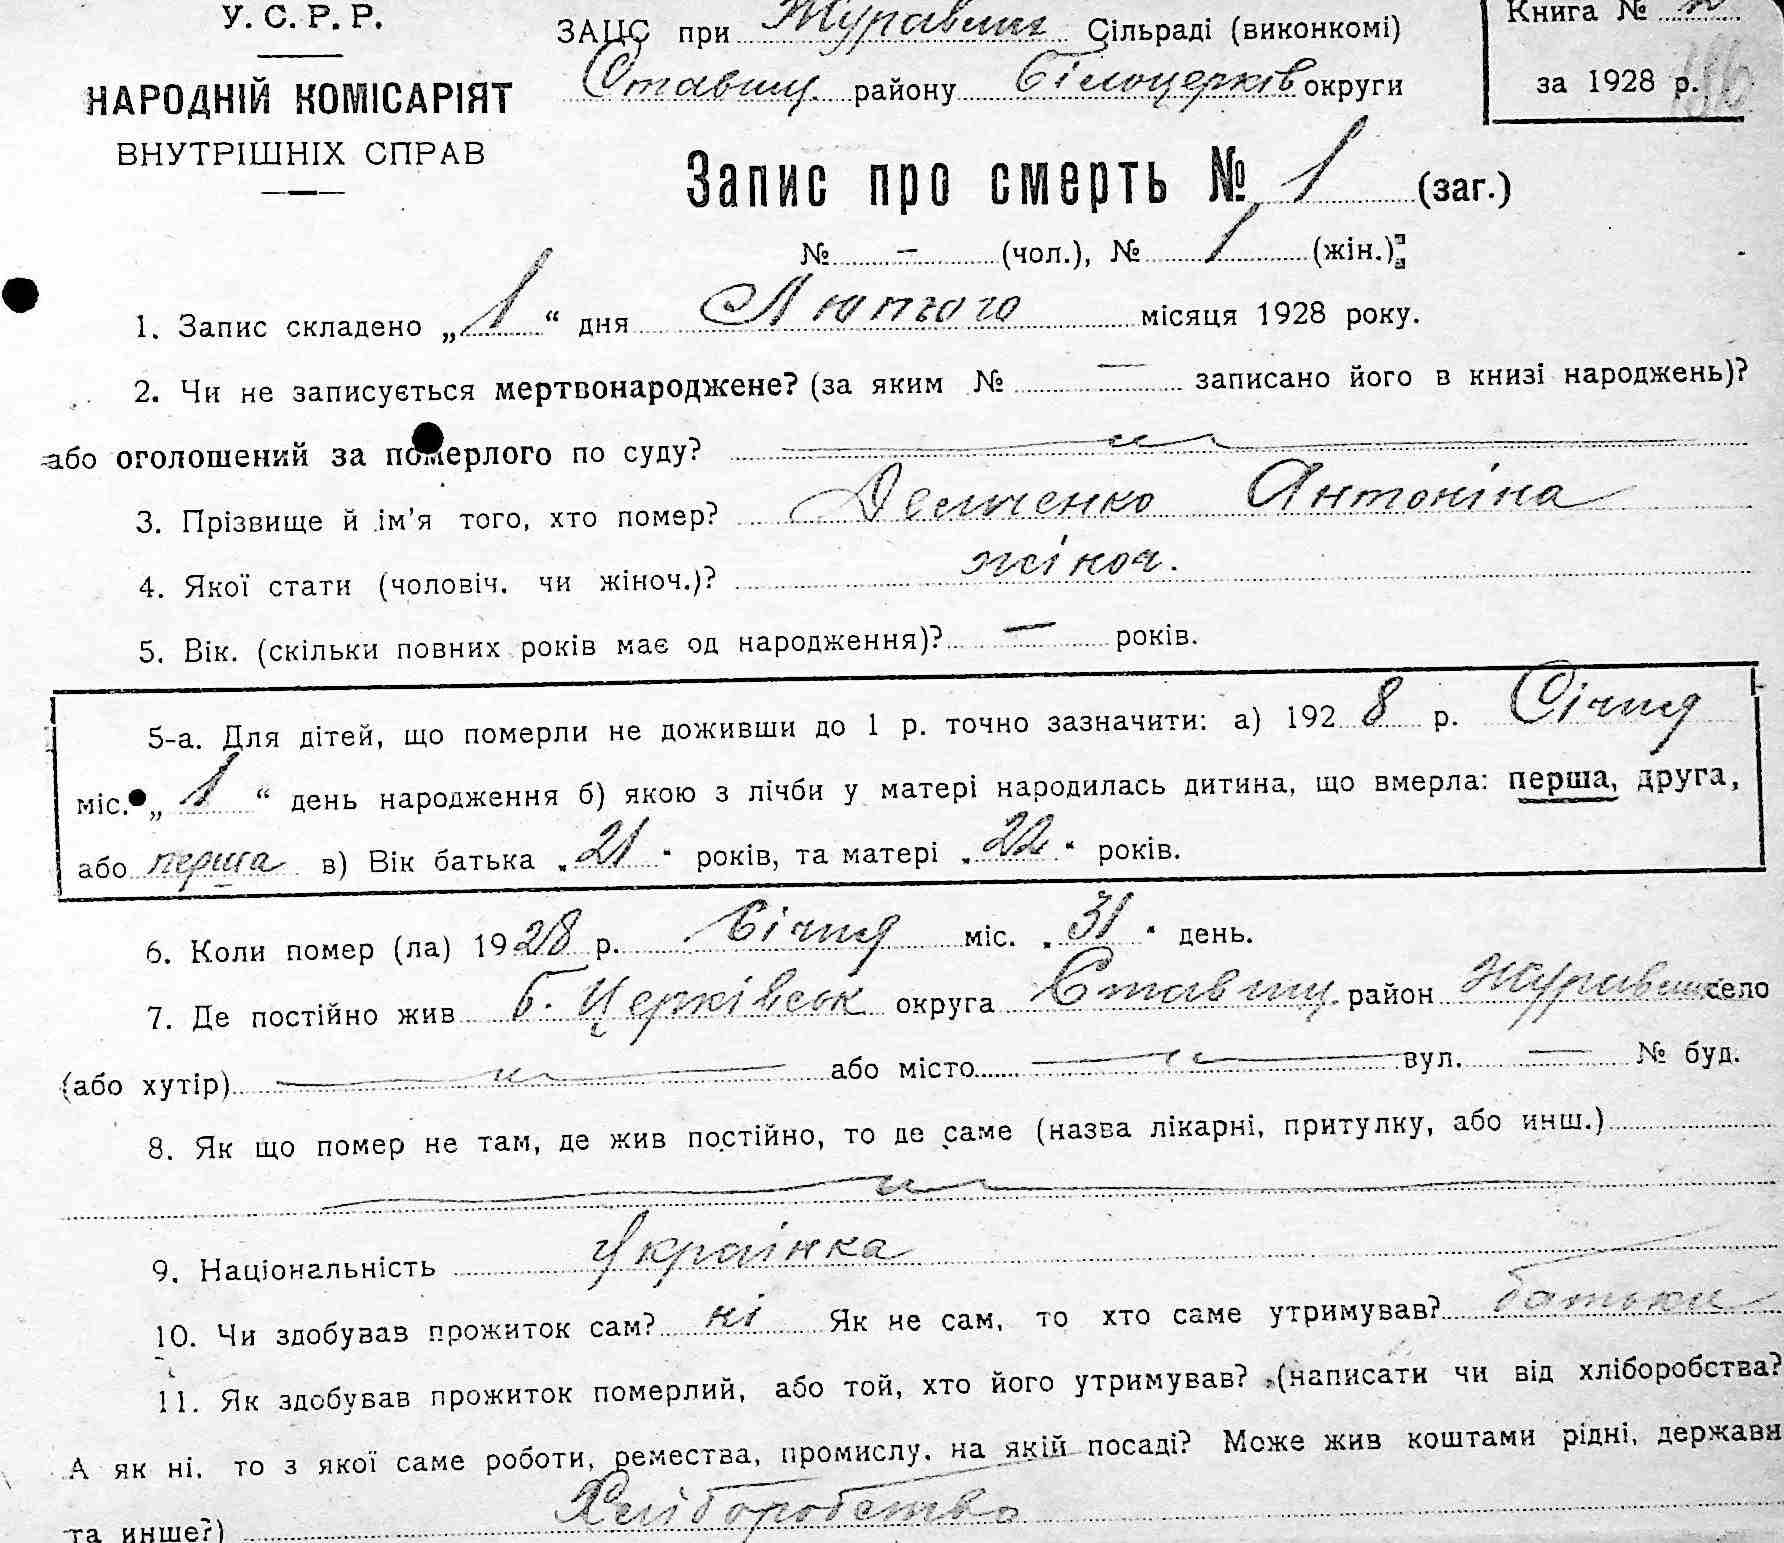 У. С. Р. Р.
НАРОДНІЙ КОМІСАРІЯТ
ВНУТРІШНІХ СПРАВ
ЗАЦС при Журавлин Сільраді (виконкомі)
Ставищ. району Білоцерків округи
Книга №
за 1928 р. 186
Запис про смерть № 1 (заг.)
№ — (чол.), № 1 (жін.)
1. Запис складено „1“ дня Лютого місяця 1928 року.
2. Чи не записується мертвонароджене? (за яким № — записано його в книзі народжень)?
або оголошений за померлого по суду?
3. Прізвище й ім'я того, хто помер? Демченко Антоніна
4. Якої стати (чоловіч. чи жіноч.)? жіноч.
5. Вік. (скільки повних років має од народження)? — років.
5-а. Для дітей, що померли не доживши до 1 р. точно зазначити: а) 1928 р. Січня
міс. „1“ день народження б) якою з лічби у матері народилась дитина, що вмерла: перша, друга,
або перша в) Вік батька „21“ років, та матері „22“ років.
6. Коли помер (ла) 1928 р. Січня міс. „31“ день.
7. Де постійно жив б. Церківськ округа Ставищ. район село
(або хутір) — або місто — вул. — № буд.
8. Як що помер не там, де жив постійно, то де саме (назва лікарні, притулку, або инш.)
9. Національність Українка
10. Чи здобував прожиток сам? ні Як не сам, то хто саме утримував? батьки
11. Як здобував прожиток померлий, або той, хто його утримував? (написати чи від хліборобства?
А як ні, то з якої саме роботи, ремества, промислу, на якій посаді? Може жив коштами рідні, держави
та инше?) Хліборобство